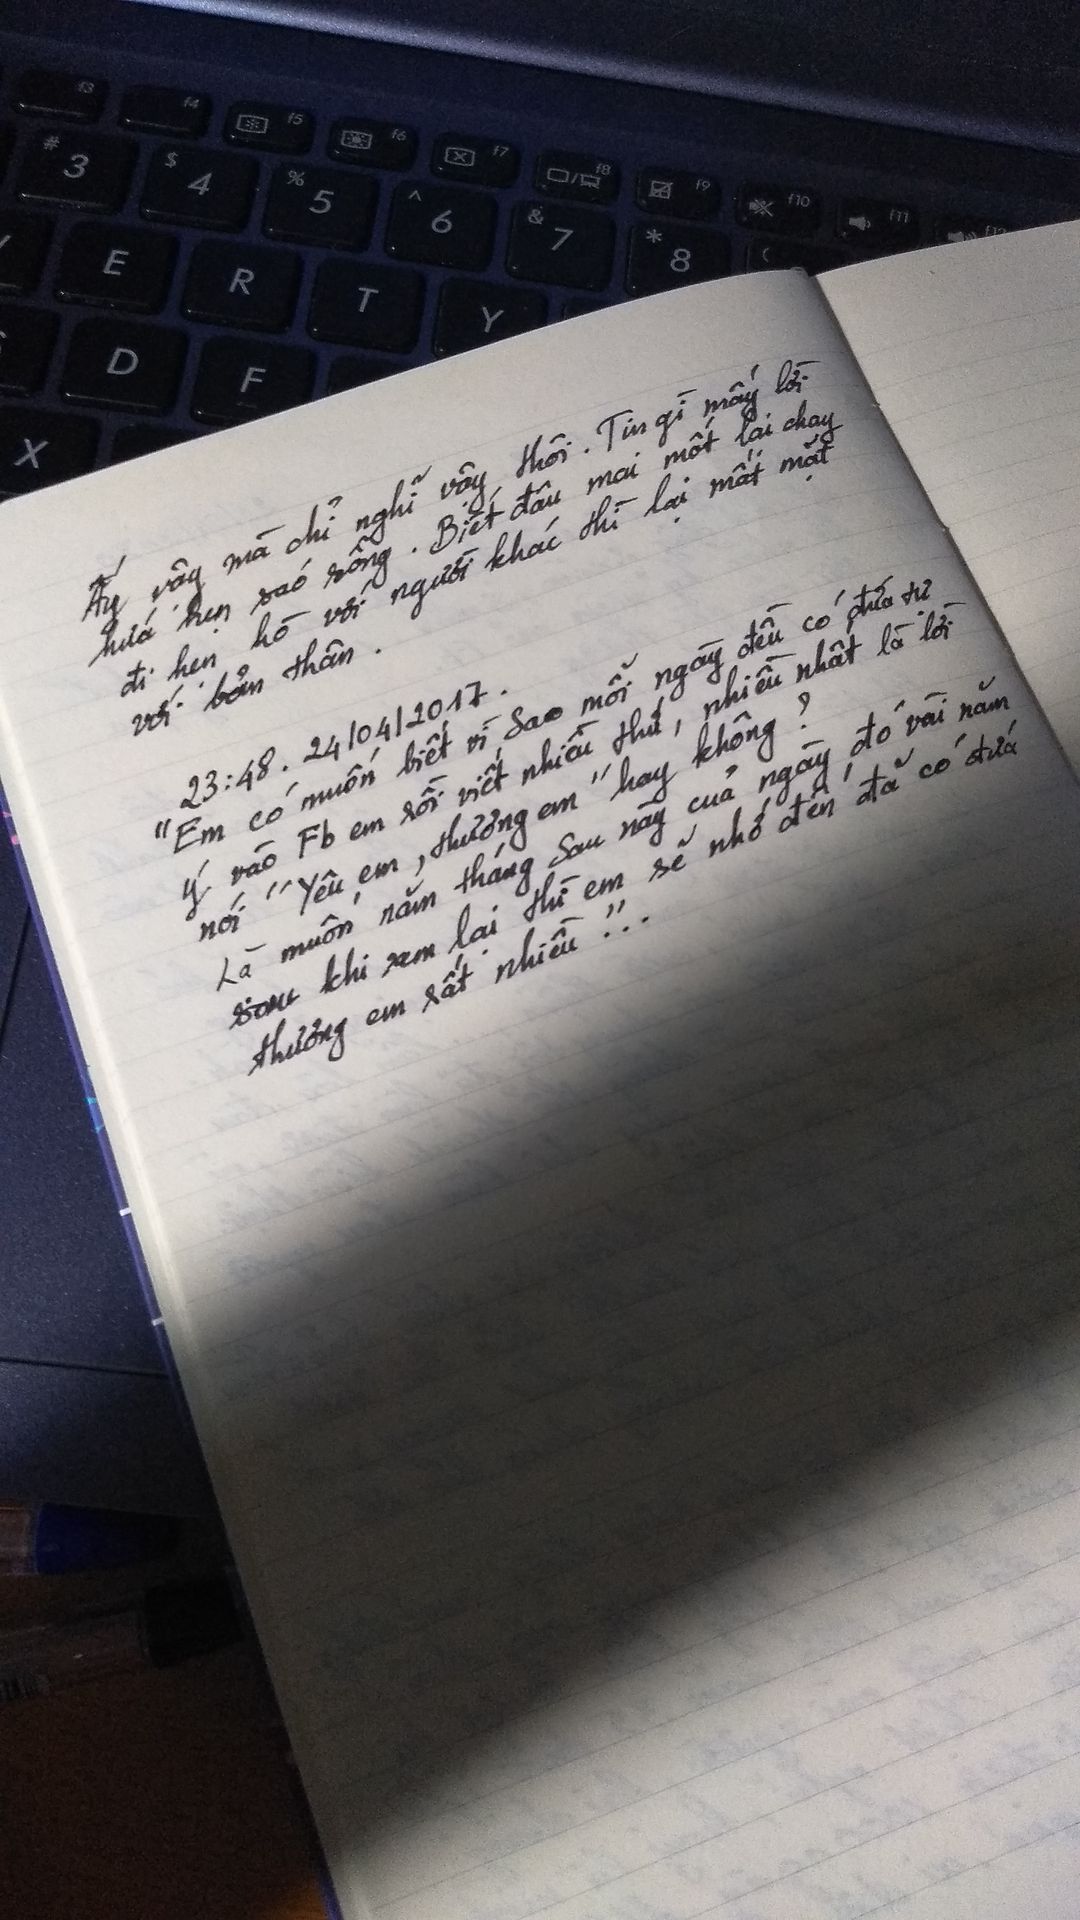 f3 f4 f5 f6 f7 f8 f9 f10 f11 f12
# 3 $ 4 % 5 ^ 6 & 7 * 8 (
E R T Y
D F
X
Ấy vậy mà chỉ nghĩ vậy thôi. Tin gì mấy lời
hứa hẹn sáo rỗng. Biết đâu mai mốt lại chạy
đi hẹn hò với người khác thì lại mất mặt
với bản thân.
23:48. 24/04/2017.
"Em có muốn biết vì sao mỗi ngày đều có đứa tự
ý vào Fb em rồi viết nhiều thứ, nhiều nhất là lời
nói "Yêu em, thương em" hay không?
Là muốn năm tháng sau này của ngày đó vài năm
sau khi xem lại thì em sẽ nhớ đến đã có đứa
thương em rất nhiều".